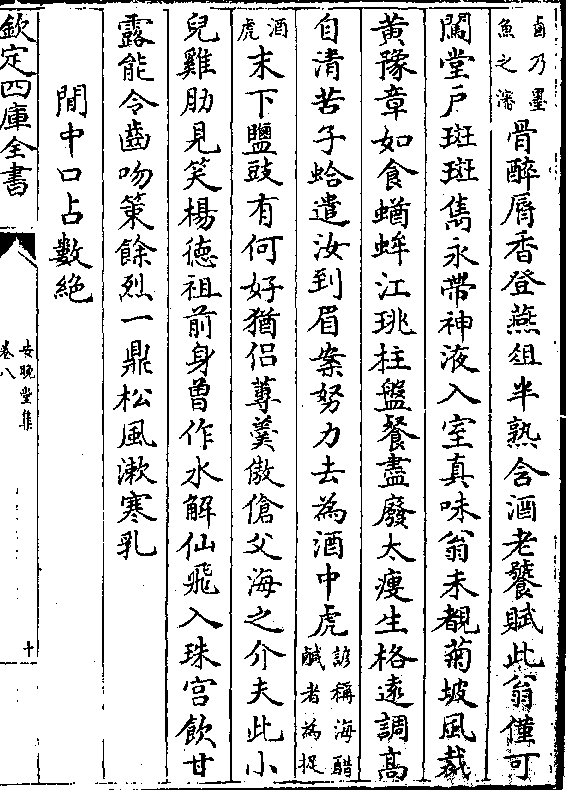 鹵乃墨
魚之瀋
骨醉屑香登燕俎半熟含酒老饕賦此翁僅可
闖堂戶斑斑雋永帶神液入室真味翁未覩菊坡風裁
黃豫章如食蝤蛑江珧柱盤餐盡廢太瘦生格遠調高
自清苦子蛤遣汝到眉案努力去為酒中虎
諺稱海醋
鹹者為捉
酒
虎
末下鹽豉有何好猶侣蓴羹傲傖父海之介夫此小
兒雞肋見笑楊德祖前身曽作水解仙飛入珠宫飲甘
露能令齒吻策餘烈一鼎松風漱寒乳
閒中口占數絶
欽定四庫全書
安晚堂集
卷八
十